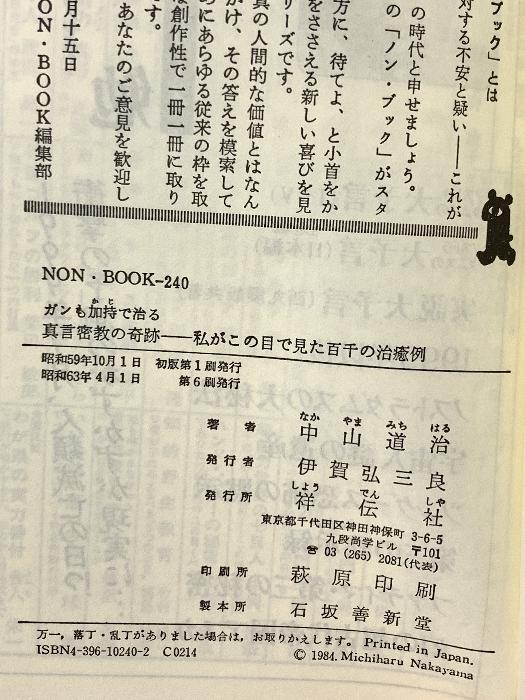 ブック」とは
対する不安と疑い――これが
の時代と申せましょう。
の「ノン・ブック」がスタ
方に、待てよ、と小首をか
をささえる新しい喜びを見
リーズです。
真の人間的な価値とはなん
かけ、その答えを模索して
らにあらゆる従来の枠を取
は創作性で一冊一冊に取り
です。
あなたのご意見を歓迎し
月十五日
NON・BOOK編集部
NON・BOOK-240
ガンも加持で治る
かじ
真言密教の奇跡――私がこの目で見た百千の治癒例
昭和59年10月1日 初版第1刷発行
昭和63年4月1日 第6刷発行
なか やま みち はる
著者 中山道治
発行者 伊賀弘三良
しょう でん しゃ
発行所 祥伝社
東京都千代田区神田神保町 3-6-5
九段尚学ビル 〒101
☎ 03 (265) 2081(代表)
印刷所 萩原印刷
製本所 石坂善新堂
万一，落丁・乱丁がありました場合は，お取りかえします。 Printed in Japan.
ISBN4-396-10240-2 C0214 © 1984. Michiharu Nakayama